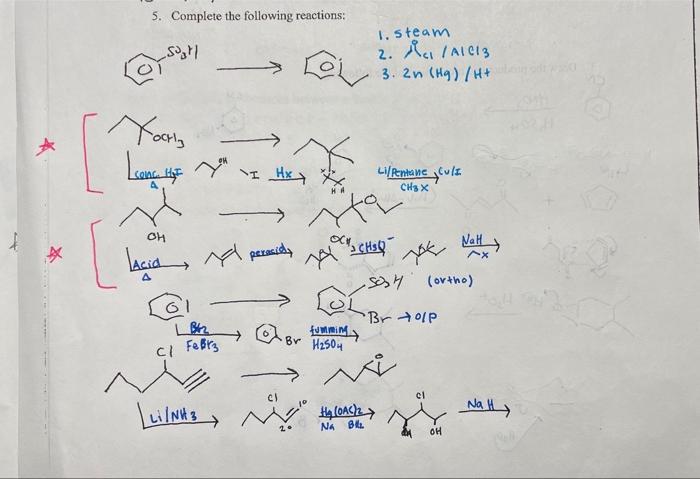 5. Complete the following reactions:
1. steam
SO3H
2. Cl / AlCl3
3. Zn (Hg) / H+
OCH3
conc. HI
Δ
OH
I
Hx
x x
H H
Li/Pentane
CuI
CH3X
OH
O
Acid
Δ
peracid
OCH3
CH3O-
NaH
X
SO3H (ortho)
Br → O/P
Br2
FeBr3
Br
fumming
H2SO4
Cl
O
Li/NH3
Cl
1°
2°
Hg(OAC)2
Na BH4
Cl
OH
NaH